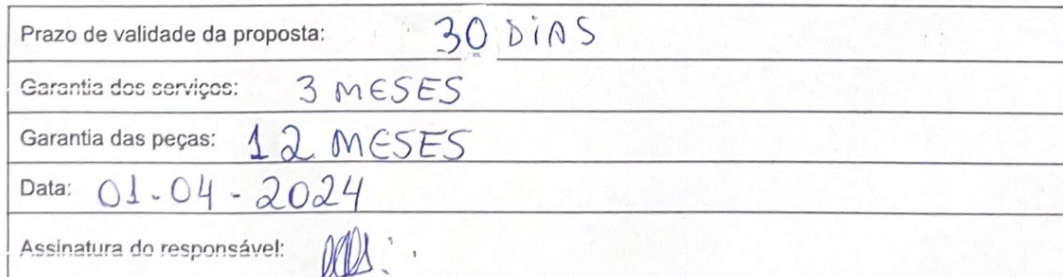 Prazo de validade da proposta: 30 DIAS
Garantia dos serviços: 3 MESES
Garantia das peças: 12 MESES
Data: 01-04-2024
Assinatura do responsável: